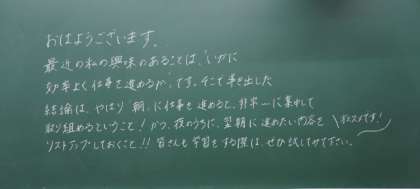 おはようございます。
最近の私の興味のあることは、「いかに
効率よく仕事を進めるか」です。そこで導き出した
結論は、やはり 朝に仕事を進めると、非常に集中して
取り組めるということ！かつ、夜のうちに、翌朝に進めたい内容を
リストアップしておくこと!! 皆さんも学習をする際は、ぜひ試してみて下さい。
オススメです!